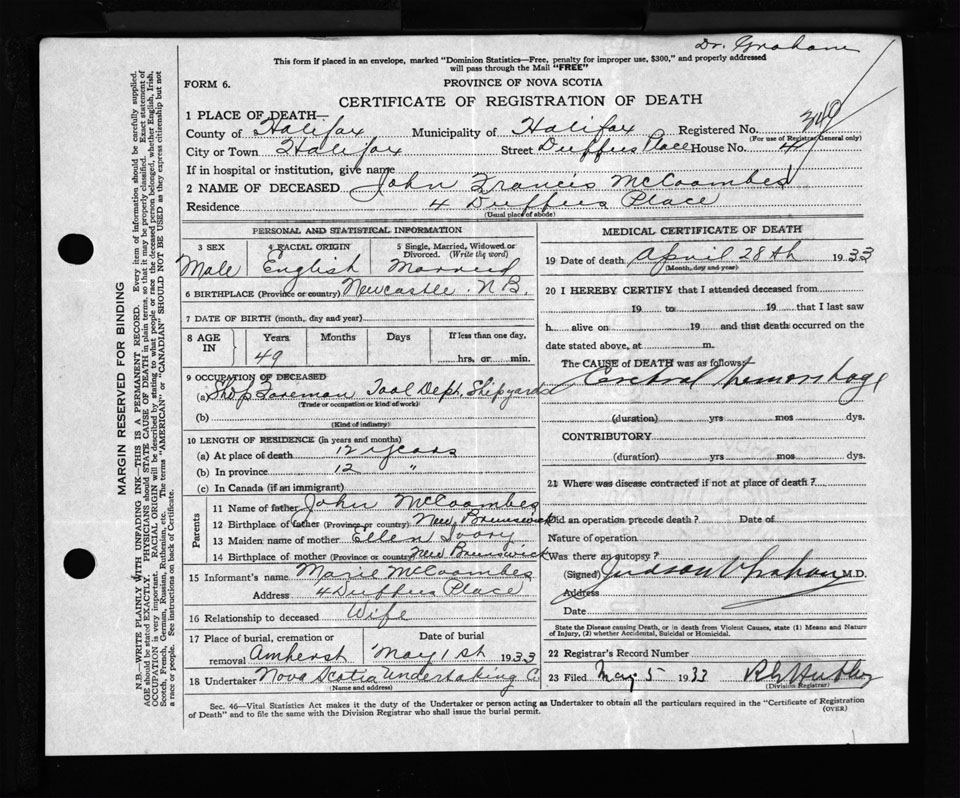 Dr. Graham
This form if placed in an envelope, marked "Dominion Statistics—Free, penalty for improper use, $300," and properly addressed
will pass through the Mail "FREE"
FORM 6.
PROVINCE OF NOVA SCOTIA
CERTIFICATE OF REGISTRATION OF DEATH
1 PLACE OF DEATH—
County of Halifax Municipality of Halifax Registered No. 340
(For use of Registrar General only)
City or Town Halifax Street Duffus Place House No. 4
If in hospital or institution, give name
2 NAME OF DECEASED John Francis McCoombes
Residence 4 Duffus Place
(Usual place of abode)
PERSONAL AND STATISTICAL INFORMATION
3 SEX Male
4 RACIAL ORIGIN English
5 Single, Married, Widowed or Divorced. (Write the word) Married
6 BIRTHPLACE (Province or country) Newcastle N.B.
7 DATE OF BIRTH (month, day and year)
8 AGE IN Years Months Days If less than one day,
49 hrs. or min.
9 OCCUPATION OF DECEASED
(a) Shop Foreman Tool Dept. Shipyards
(Trade or occupation or kind of work)
(b)
(Kind of industry)
10 LENGTH OF RESIDENCE (in years and months)
(a) At place of death 12 years
(b) In province 12 "
(c) In Canada (if an immigrant)
Parents
11 Name of father John McCoombes
12 Birthplace of father (Province or country) New Brunswick
13 Maiden name of mother Ellen
14 Birthplace of mother (Province or country) New Brunswick
15 Informant's name Marie McCoombes
Address 4 Duffus Place
16 Relationship to deceased Wife
17 Place of burial, cremation or removal Amherst
Date of burial May 1st 1933
18 Undertaker Nova Scotia Undertaking Co
(Name and address)
MEDICAL CERTIFICATE OF DEATH
19 Date of death April 28th 1933
(Month, day and year)
20 I HEREBY CERTIFY that I attended deceased from
19 to 19 that I last saw
h alive on 19 and that death occurred on the
date stated above, at m.
The CAUSE of DEATH was as follows
Cerebral hemorrhage
(duration) yrs mos dys.
CONTRIBUTORY
(duration) yrs mos dys.
21 Where was disease contracted if not at place of death?
Did an operation precede death? Date of
Nature of operation
Was there an autopsy?
(Signed) Judson V Graham M.D.
Address
Date
State the Disease causing Death, or in death from Violent Causes, state (1) Means and Nature
of Injury, (2) whether Accidental, Suicidal or Homicidal.
22 Registrar's Record Number
23 Filed May 5 1933
(Division Registrar)
Sec. 46—Vital Statistics Act makes it the duty of the Undertaker or person acting as Undertaker to obtain all the particulars required in the "Certificate of Registration
of Death" and to file the same with the Division Registrar who shall issue the burial permit.
(OVER)
MARGIN RESERVED FOR BINDING
N.B.—WRITE PLAINLY WITH UNFADING INK—THIS IS A PERMANENT RECORD. Every item of information should be carefully supplied.
AGE should be stated EXACTLY. PHYSICIANS should STATE CAUSE OF DEATH in plain terms, so that it may be properly classified. Exact statement of
OCCUPATION is very important. RACIAL ORIGIN will be described by stating to what people or race the deceased person belonged, whether English, Irish,
Scotch, French, German, Russian, Ruthenian, etc. The terms "AMERICAN" or "CANADIAN" SHOULD NOT BE USED as they express citizenship but not
a race or people. See instructions on back of Certificate.